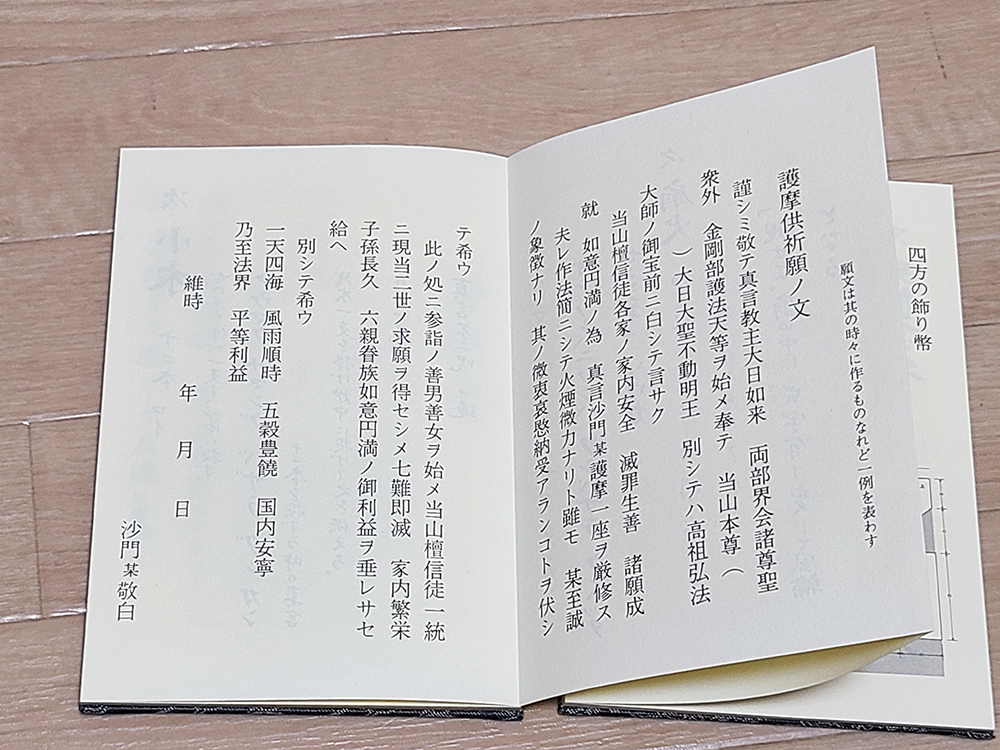 四方の飾り幣
護摩供祈願ノ文
願文は其の時々に作るものなれど一例を表わす
謹シミ敬テ真言教主大日如来　両部界会諸尊聖
衆外　金剛部護法天等ヲ始メ奉テ　当山本尊（
　　　）大日大聖不動明王　別シテハ高祖弘法
大師ノ御宝前ニ白シテ言サク
当山檀信徒各家ノ家内安全　滅罪生善　諸願成
就　如意円満ノ為　真言沙門某護摩一座ヲ厳修ス
夫レ作法簡ニシテ火煙微力ナリト雖モ　某至誠
ノ象徴ナリ　其ノ微衷哀愍納受アランコトヲ伏シ
テ希ウ
此ノ処ニ参詣ノ善男善女ヲ始メ当山檀信徒一統
ニ現当二世ノ求願ヲ得セシメ七難即滅　家内繁栄
子孫長久　六親眷族如意円満ノ御利益ヲ垂レサセ
給ヘ
別シテ希ウ
一天四海　風雨順時　五穀豊饒　国内安寧
乃至法界　平等利益
維時　　年　月　日
沙門某敬白